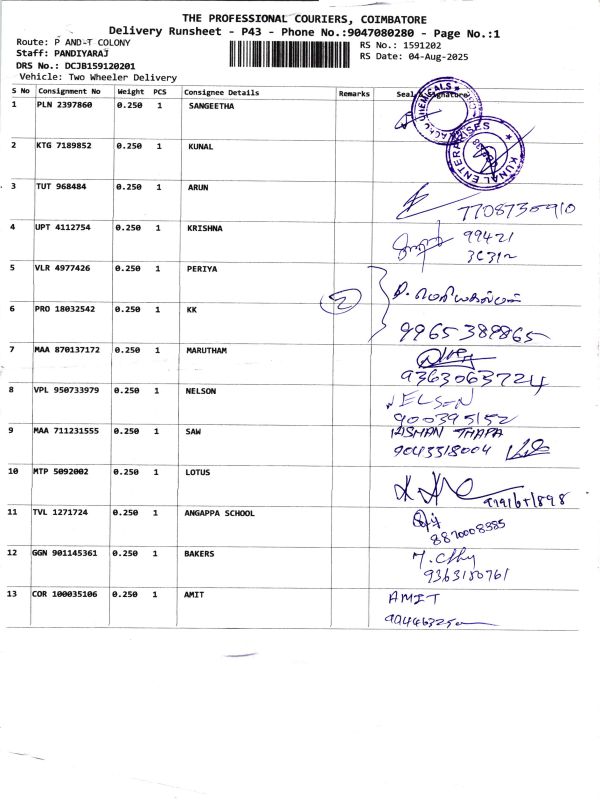 THE PROFESSIONAL COURIERS, COIMBATORE
Delivery Runsheet - P43 - Phone No.:9047080280 - Page No.:1
Route: P AND-T COLONY
RS No.: 1591202
Staff: PANDIYARAJ
RS Date: 04-Aug-2025
DRS No.: DCJB159120201
Vehicle: Two Wheeler Delivery
S No Consignment No Weight PCS Consignee Details Remarks Seal & Signature
1 PLN 2397860 0.250 1 SANGEETHA
2 KTG 7189852 0.250 1 KUNAL
KUNAL ENTERPRISES
3 TUT 968484 0.250 1 ARUN
4 UPT 4112754 0.250 1 KRISHNA 99421
5 VLR 4977426 0.250 1 PERIYA
2
6 PRO 18032542 0.250 1 KK
9965389865
7 MAA 870137172 0.250 1 MARUTHAM
9363063724
8 VPL 950733979 0.250 1 NELSON NELSON
900395152
9 MAA 711231555 0.250 1 SAW KISHAN THAPA
9043318004
10 MTP 5092002 0.250 1 LOTUS
11 TVL 1271724 0.250 1 ANGAPPA SCHOOL
8870008385
12 GGN 901145361 0.250 1 BAKERS
9363150761
13 COR 100035106 0.250 1 AMIT AMIT